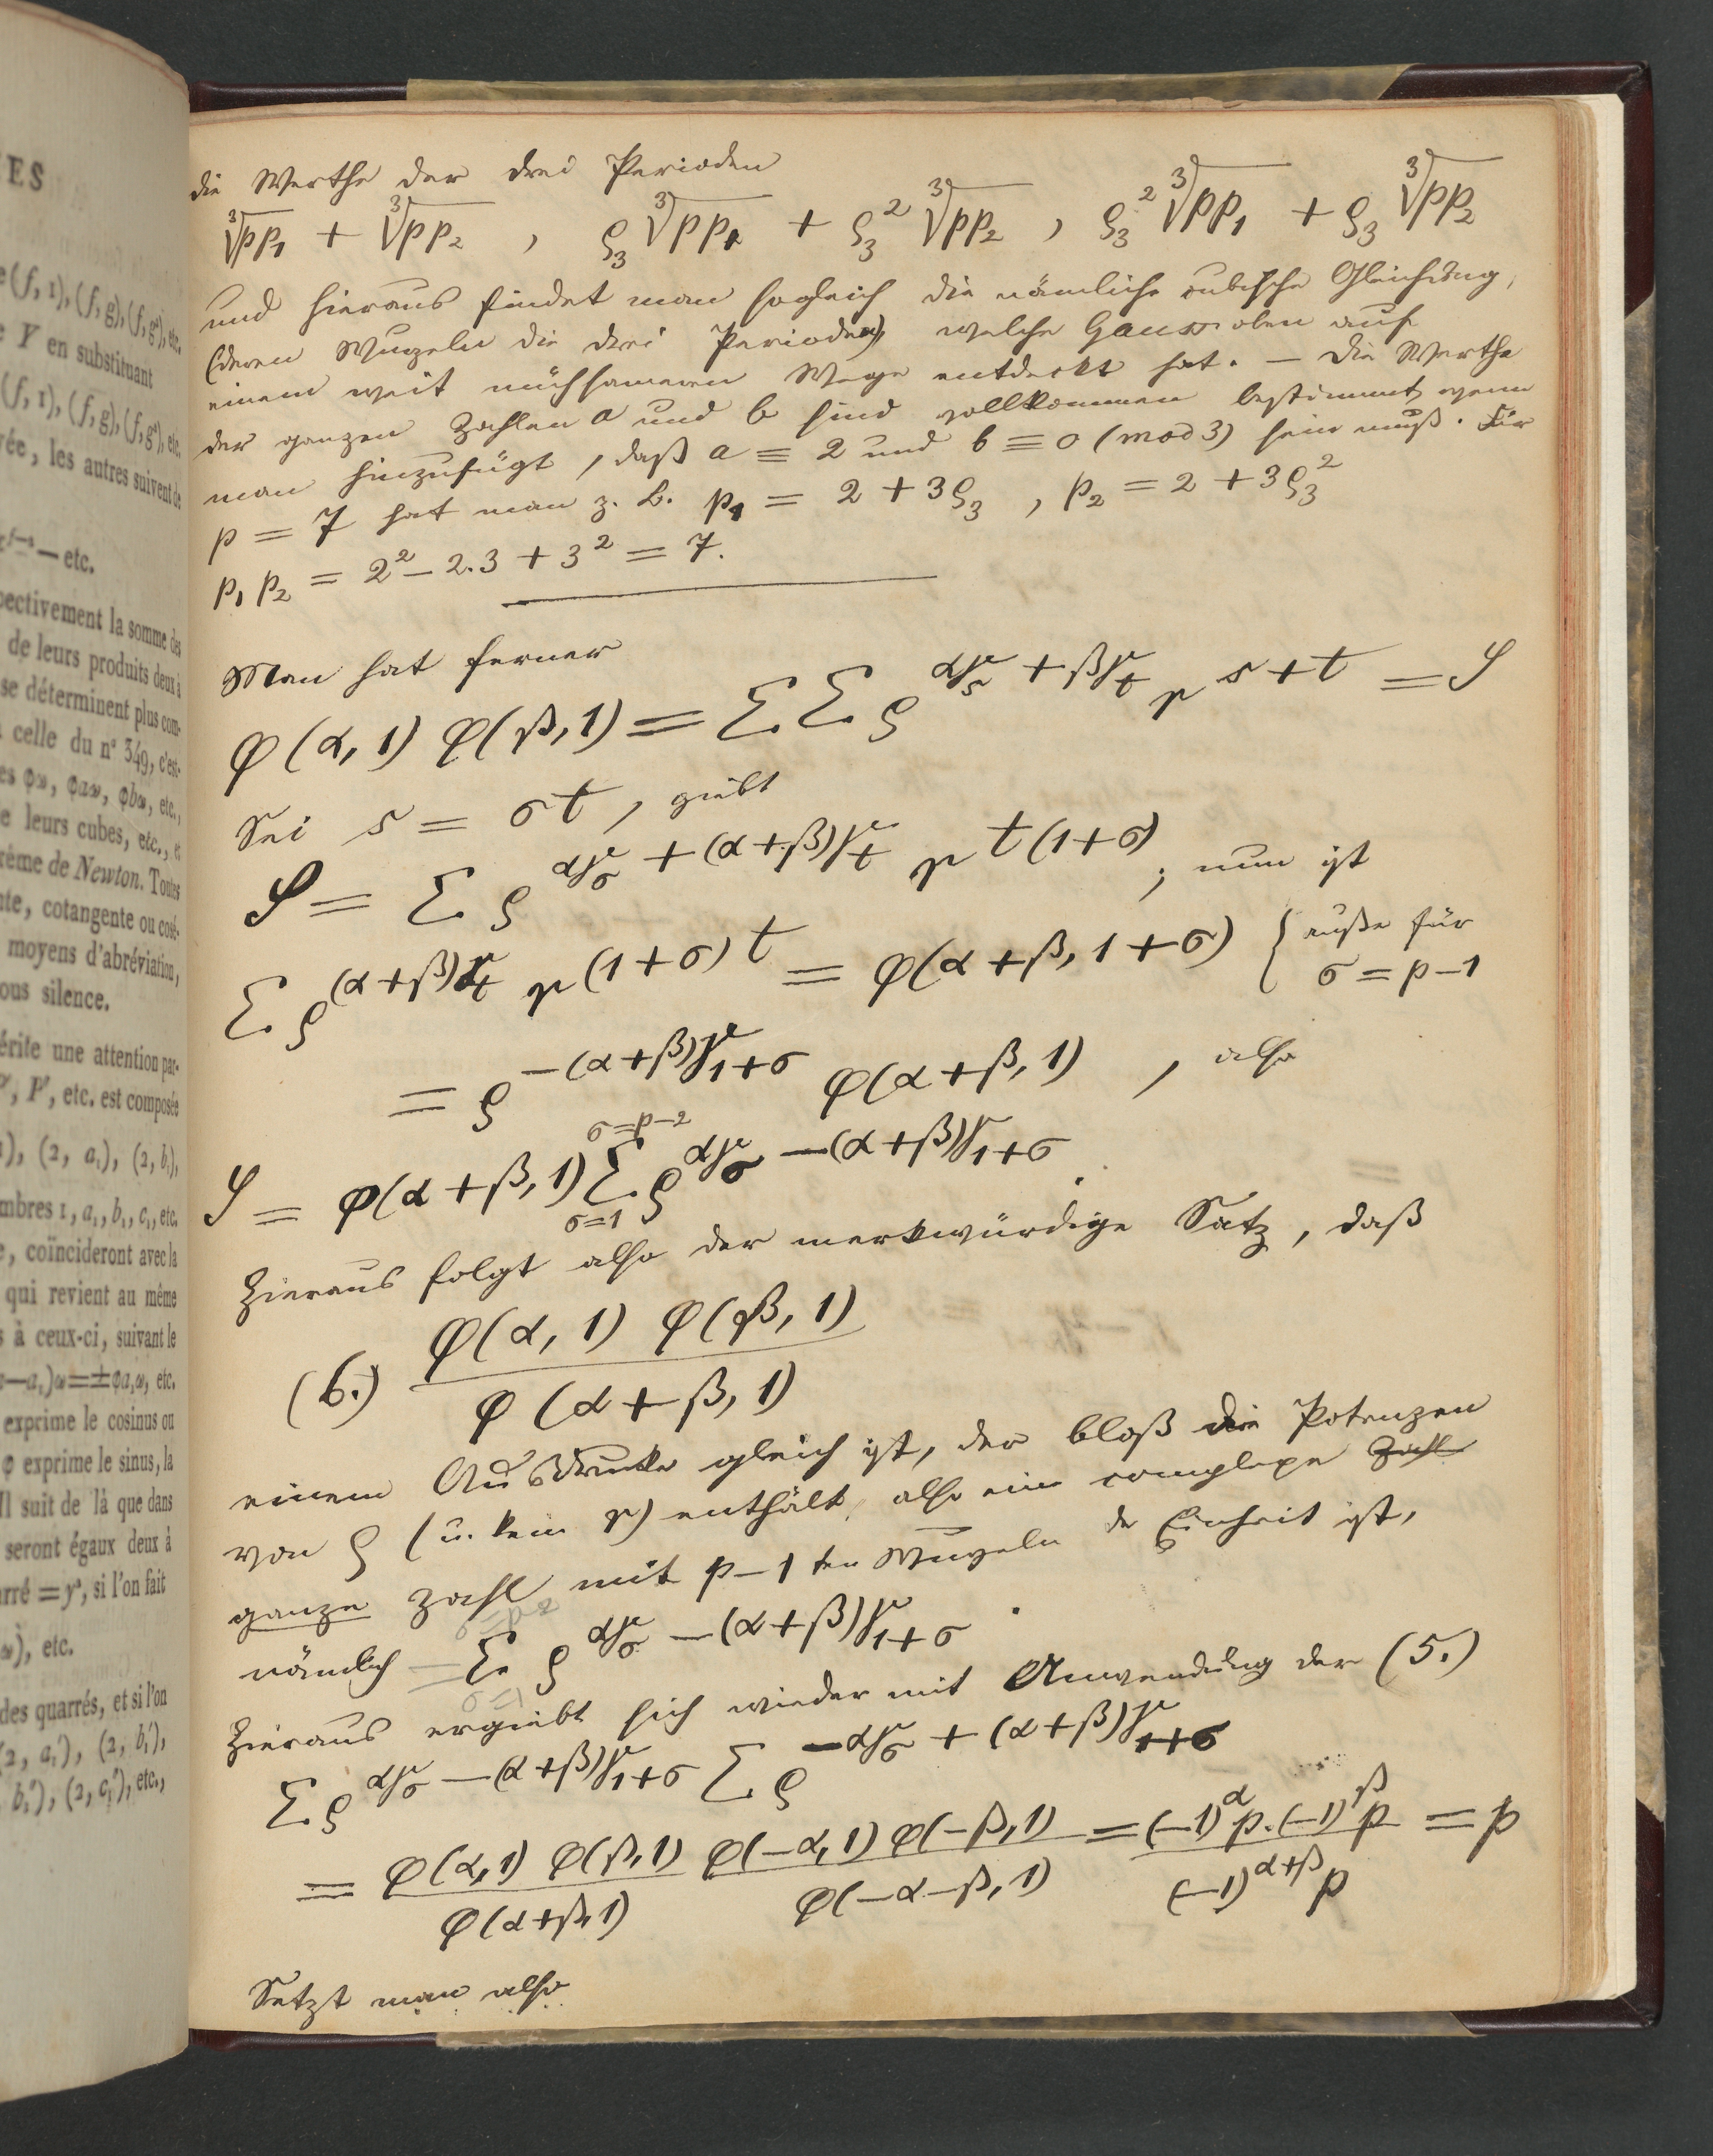 ES
e (f, 1), (f, g), (f, g²), etc.
e Y en substituant
(f, 1), (f, g), (f, g²), etc.
vée, les autres suivent de
— etc.
pectivement la somme des
de leurs produits deux à
se déterminent plus com-
celle du n° 349, c'est-
es φω, φaω, φbω, etc.,
e leurs cubes, etc., et
rème de Newton. Toutes
nte, cotangente ou cosé-
moyens d'abréviation,
ous silence.
érite une attention par-
P', etc. est composée
), (2, a₁), (2, b₁),
mbres 1, a₁, b₁, c₁, etc.
e, coïncideront avec la
qui revient au même
s à ceux-ci, suivant le
—a₁)ω=±φa₁ω, etc.
exprime le cosinus ou
φ exprime le sinus, la
Il suit de là que dans
seront égaux deux à
arré = y², si l'on fait
ω), etc.
des quarrés, et si l'on
(2, a₁'), (2, b₁'),
b₁'), (2, c₁'), etc.,
die Werthe der drei Perioden
∛pp₁ + ∛pp₂ , ρ₃ ∛pp₁ + ρ₃² ∛pp₂ , ρ₃² ∛pp₁ + ρ₃ ∛pp₂
und hieraus findet man sogleich die nämliche cubische Gleichung,
(deren Wurzeln die drei Perioden) welche Gauss oben auf
einem weit mühsameren Wege entdeckt hat. — Die Werthe
der ganzen Zahlen a und b sind vollkommen bestimmt, wenn
man hinzufügt, daß a ≡ 2 und b ≡ 0 (mod 3) sein muß. Für
p = 7 hat man z. B. p₁ = 2 + 3ρ₃ , p₂ = 2 + 3ρ₃²
p₁ p₂ = 2² − 2.3 + 3² = 7.
Man hat ferner
φ(α, 1) φ(β, 1) = Σ Σ ρ^{αγ_s + βγ_t} r^{s+t} = S
Sei s = σt , giebt
S = Σ ρ^{αγ_σ + (α+β)γ_t} r^{t(1+σ)} ; nun ist
Σ ρ^{(α+β)γ_t} r^{(1+σ)t} = φ(α+β, 1+σ) { auße für
σ = p−1
= ρ^{−(α+β)γ_{1+σ}} φ(α+β, 1) , also
σ=p−2
S = φ(α+β, 1) Σ ρ^{αγ_σ − (α+β)γ_{1+σ}} .
σ=1
Hieraus folgt also der merkwürdige Satz, daß
φ(α, 1) φ(β, 1)
(6.)
φ(α+β, 1)
einem Ausdrucke gleich ist, der bloß die Potenzen
von ρ (u. kein r) enthält, also eine complexe Zahl
ganze Zahl mit p−1ten Wurzeln der Einheit ist,
σ=p−2
nämlich = Σ ρ^{αγ_σ − (α+β)γ_{1+σ}} .
σ=1
Hieraus ergiebt sich wieder mit Anwendung der (5.)
Σ ρ^{αγ_σ − (α+β)γ_{1+σ}} Σ ρ^{−αγ_σ + (α+β)γ_{1+σ}}
= φ(α,1) φ(β,1) φ(−α,1) φ(−β,1) = (−1)^α p . (−1)^β p = p
φ(α+β,1) φ(−α−β, 1) (−1)^{α+β} p
Setzt man also